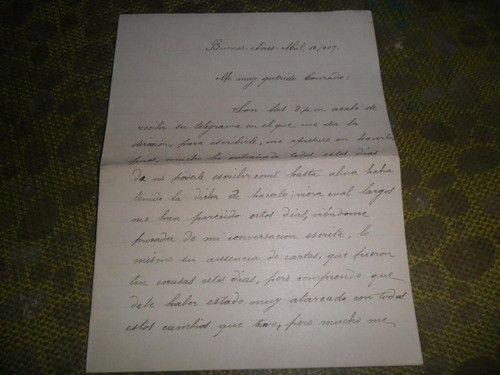 Buenos Aires Abril 10/909.
Mi muy querido Conrado:
Son las 8 p.m. acabo de
recibir su telegrama en el que me da la
dirección para escribirle, me apresuro en hacerlo
pues, mucho he extrañado todos estos días
de no poderle escribir como hasta ahora había
tenido la dicha de hacerlo; viera cual largos
me han parecido estos días, viéndome
privada de mi conversacion escrita, lo
mesmo su ausencia de cartas, que fueron
tan escasas estos días, pero comprendo que
debe haber estado muy atareado con todos
estos cambios que tuvo, pero mucho me